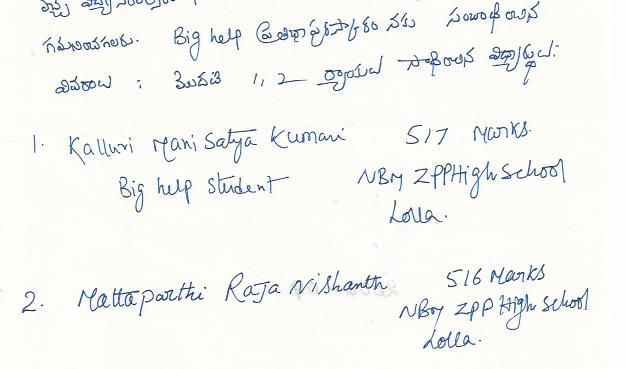 గమనించగలరు. Big help ప్రతిభా పురస్కారం నకు సంబంధించిన
వివరాలు : మొదటి 1, 2 ర్యాంకులు సాధించిన విద్యార్థులు:
1. Kalluri Mani Satya Kumari 517 Marks.
Big help Student NBM ZPP High School
Lolla.
2. Mattaparthi Raja Nishanth 516 Marks
NBM ZPP High School
Lolla.